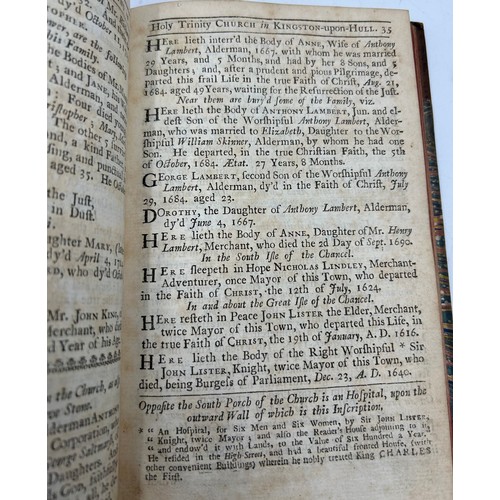 October 1
, are the follow
his Family.
Bodies of Mr.
and JANE, his
Alderman, and
Four died
istopher; Mary,
ond, a kind Father
ing, and punctual
aged 35. He
Just;
in Dust.
ughter MARY,
dy'd April 4, 17
ock, who dy'd
Mr. JOHN KING,
Merchant, who died
Year of his Age.
the Church, a
New Stone.
Alderman ANTHON
Corporation,
George
Daughters
Holy Trinity CHURCH in KINGSTON-upon-HULL. 35
HERE lieth interr'd the Body of ANNE, Wife of Anthony
Lambert, Alderman, 1667. with whom he was married
29 Years, and 5 Months, and had by her 8 Sons, and 5
Daughters; and, after a prudent and pious Pilgrimage, de-
parted this frail Life in the true Faith of Christ, Aug. 21,
1684. aged 49 Years, waiting for the Resurrection of the Just.
Near them are bury'd some of the Family, viz.
HERE lieth the Body of ANTHONY LAMBERT, Jun. and el-
dest Son of the Worshipful Anthony Lambert, Alder-
man, who was married to Elizabeth, Daughter to the Wor-
shipful William Skinner, Alderman, by whom he had one
Son. He departed, in the true Christian Faith, the 5th
of October, 1684. Ætat. 27 Years, 8 Months.
GEORGE LAMBERT, second Son of the Worshipful Anthony
Lambert, Alderman, dy'd in the Faith of Christ, July
29, 1684. aged 23.
DOROTHY, the Daughter of Anthony Lambert, Alderman,
dy'd June 4, 1667.
HERE lieth the Body of ANNE, Daughter of Mr. Henry
Lambert, Merchant, who died the 2d Day of Sept. 1690.
In the South Isle of the Chancel.
HERE sleepeth in Hope NICHOLAS LINDLEY, Merchant-
Adventurer, once Mayor of this Town, who departed
in the Faith of CHRIST, the 12th of July, 1624.
In and about the Great Isle of the Chancel.
HERE resteth in Peace JOHN LISTER the Elder, Merchant,
twice Mayor of this Town, who departed this Life, in
the true Faith of CHRIST, the 19th of January, A. D. 1616.
HERE lieth the Body of the Right Worshipful * Sir
JOHN LISTER, Knight, twice Mayor of this Town, who
died, being Burgess of Parliament, Dec. 23, A. D. 1640.
Opposite the South Porch of the Church is an Hospital, upon the
outward Wall of which is this Inscription,
* " An Hospital, for Six Men and Six Women, by Sir JOHN LISTER,
" Knight, twice Mayor; and also the Reader's House adjoining to it,
" and endow'd it with Lands, to the Value of Six Hundred a Year.
He resided in the High-street, and had a beautiful fronted House, (with
other convenient Buildings) wherein he nobly treated King CHARLES
the First.